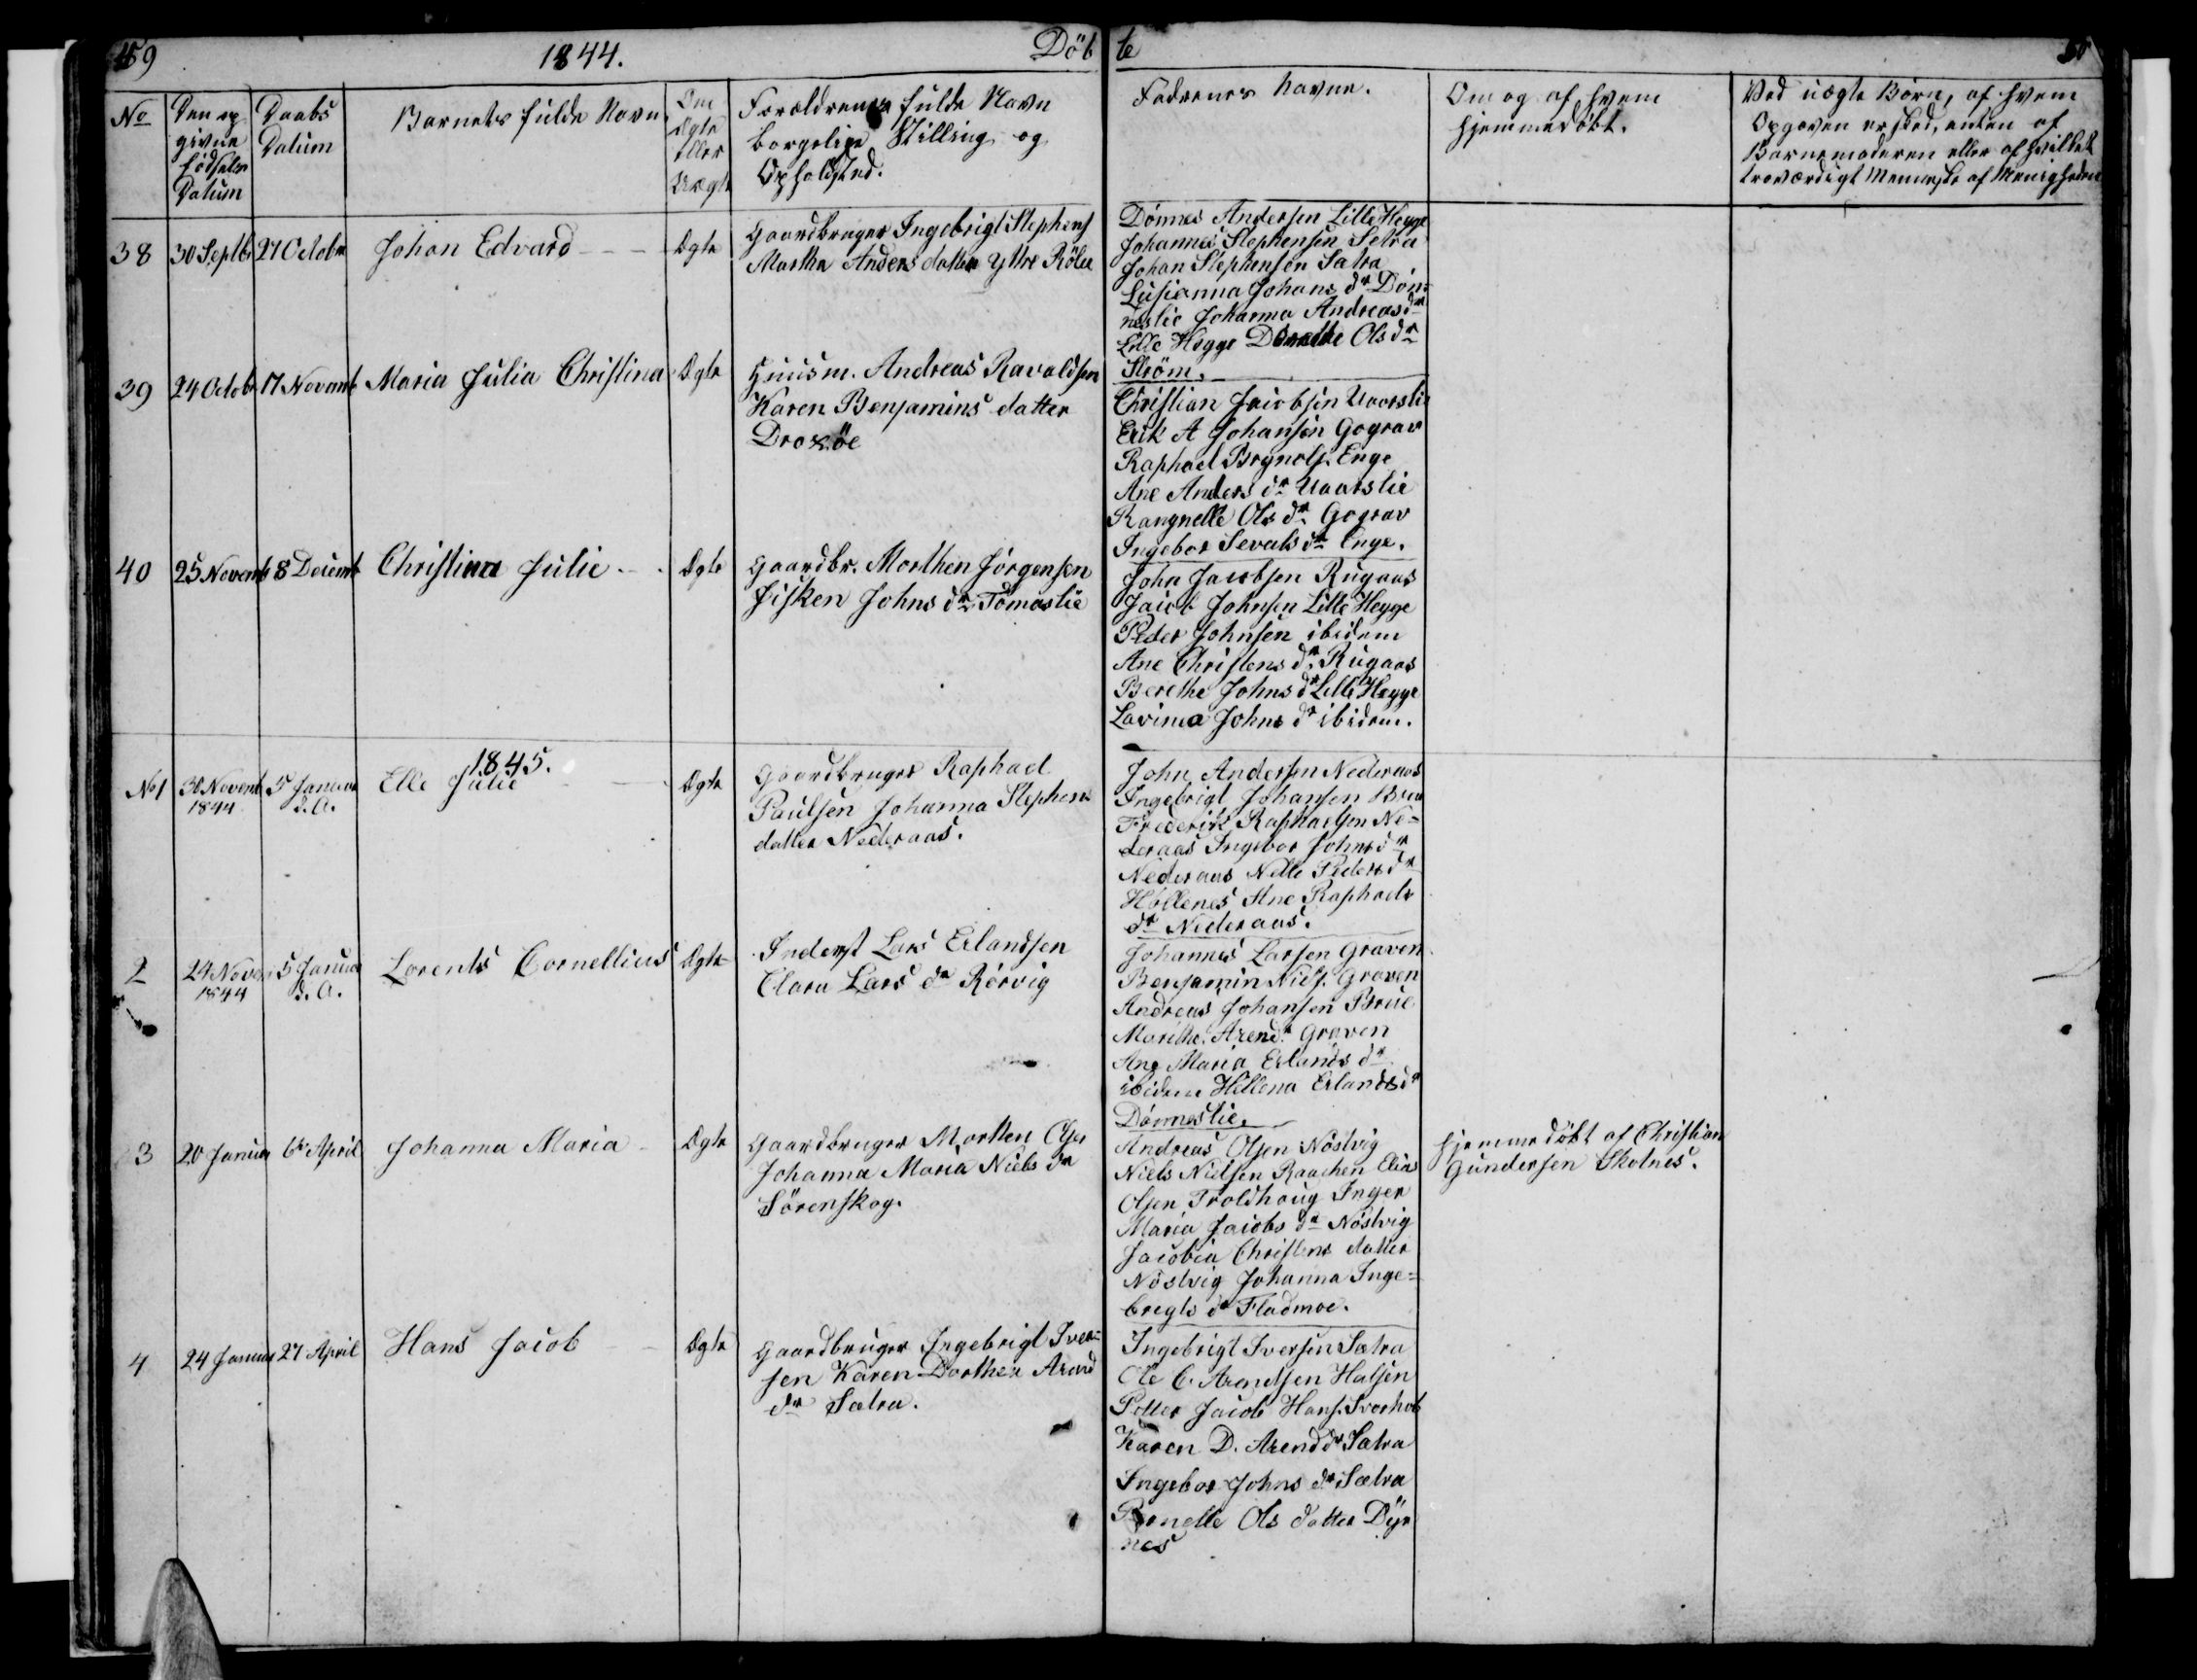 1844.
Döb te
50
No
Den op
givne
Födsels
Datum
Daabs
Datum
Barnets fulde Navn
Om
Ægte
eller
Uægte
Forældrenes fulde Navn
borgelige Stilling og
Opholdsted.
Fadrenes Navne.
Om og af hvem
hjemmedöbt.
Ved uægte Börn, af hvem
Opgaven er sked, enten af
Barnemoderen eller af hvilket
troværdigt Menneske af Menigheden
38
30 Septbr
27 Octobr
Johan Edvard
Ægte
Gaardbruger Ingebrigt Stephens
Martha Anders datter Yttre
Dönnes Andersen Lille Hegge
Johannes Stephensen Setra
Johan Stephensen Satra
Lusianna Johans dr Dön-
neslie Johanna Andreas dr
Lille Hegge Dorothe Ols dr
Ström.
39
24 Octob
17 Novemb
Maria Julia Christina
Ægte
Huusm. Andreas Ravaldsen
Karen Benjamins datter
Droxöe
Christian Jacobsen
Erik A Johansen Gograv
Raphael Brynols. Enge
Ane Anders dr
Rangnelle Ols dr Gograv
Ingebor Sevals dr Enge.
40
25 Novemb
8 Decemb
Christina Julie
Ægte
Gaardbr. Morthen Jörgensen
Fisken Johns dr Tomaslie
John Jacobsen Rugaas
Jacob Johnsen Lille Hegge
Peder Johnsen ibidem
Ane Christens dr Rugaas
Berethe Johns dr Lille Hegge
Lavina Johns dr ibidem.
1845.
No 1
30 Novemb
1844
5 Januar
d. A.
Elle Julie
Ægte
Gaardbruger Raphael
Paulsen Johanna Stephens
datter Nederaas.
John Andersen Nederaas
Ingebrigt Johansen
Frederik Raphaelsen Ne-
deraas Ingebor Johns dr
Nederaas Nelle Peders dr
Hollenes Ane Raphaels
dr Nederaas.
2
24 Novem
1844
5 Januar
d. A.
Lorents Cornellius
Ægte
Inderst Lars Erlandsen
Clara Lars dr Rörvig
Johannes Larsen Graven
Benjamin Niels. Graven
Andreas Johansen Brue
Marithe Arend. Graven
Ane Maria Erlands dr
ibidem Hellena Erlands dr
Dönneslie.
3
20 Januar
6te April
Johanna Maria
Ægte
Gaardbruger Morthen Olsen
Johanna Maria Niels dr
Sörenskog.
Andreas Olsen Nöstvig
Niels Nielsen Raachen Elias
Olsen Troldhoug Inger
Maria Jacobs dr Nöstvig
Jacobia Christens datter
Nöstvig Johanna Inge-
bregts dr Fladmoe.
hjemmedöbt af Christian
Gundersen Skotnes.
4
24 Januar
27 April
Hans Jacob
Ægte
Gaardbruger Ingebrigt Iver-
sen Karen Dorthea Arend
dr Sætra.
Ingebrigt Iversen Sætra
Ole C. Arendsen Halsen
Petter Jacob Hans.
Karen D. Arend dr Satra
Ingebor Johns dr Sætra
Ols datter Dyr
nes